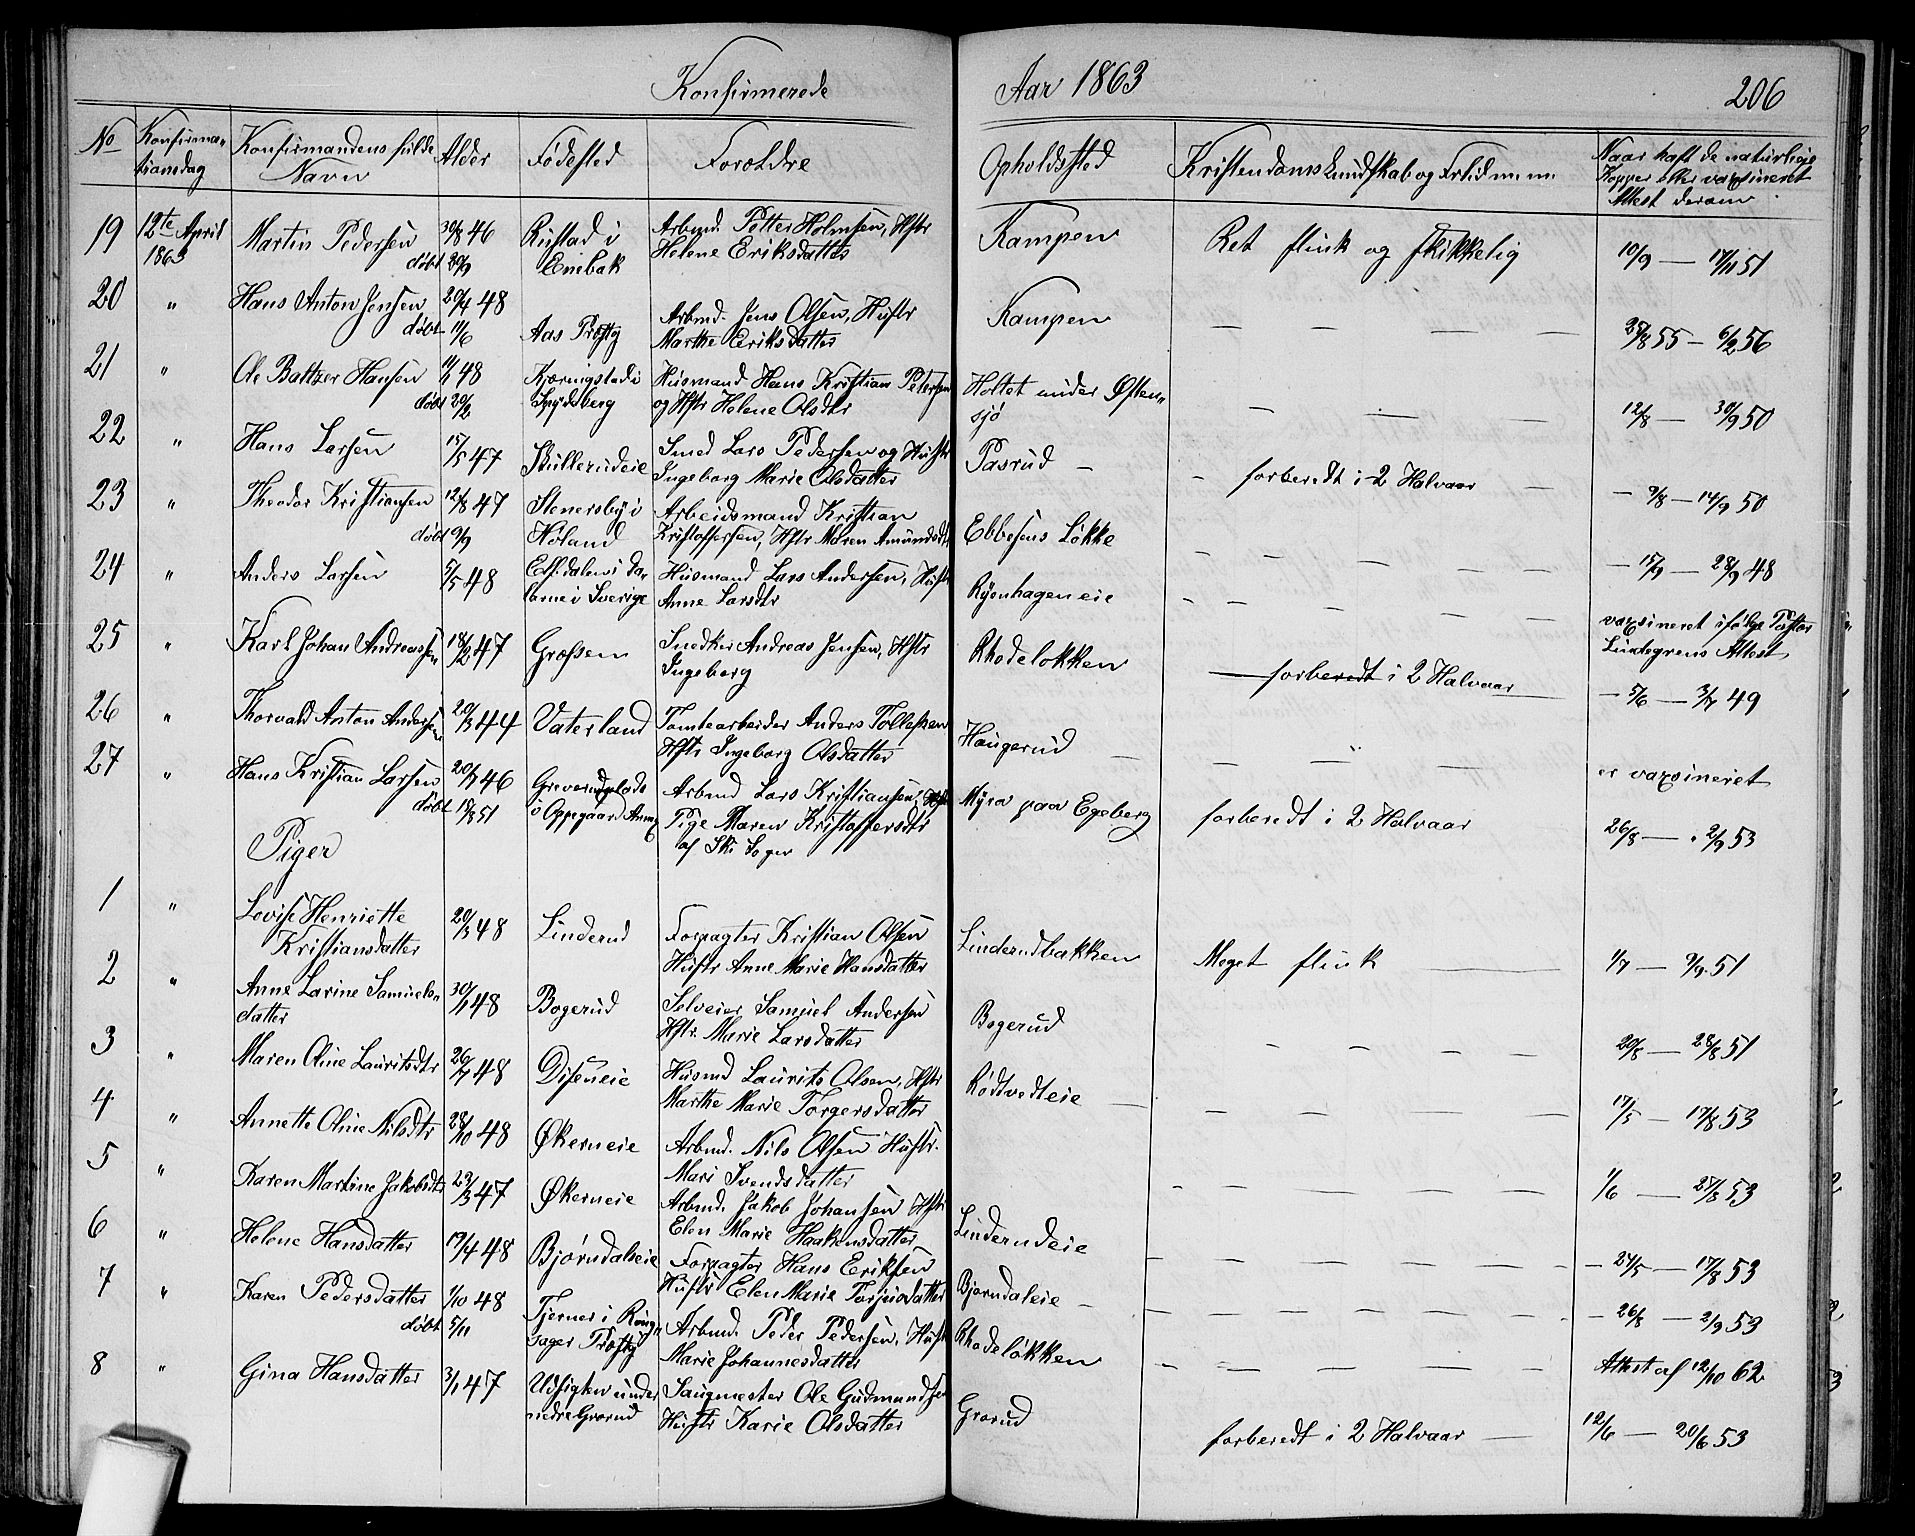 Konfirmerede Aar 1863 206
No Konfirma- Konfirmandens fulde Alder Fødested Forældre Opholdssted Kristendomskundskab og Forhold m.m. Naar haft de naturlige
tionsdag Navn Kopper eller vaxsineret
Attest derom
19 12te April Martin Pedersen 30/8 46 Rustad i Arbmd. Petter Holmsen, Hstr Kampen Ret flink og skikkelig 10/9 — 17/11 51
1863 døbt 20/9 Enebak Helene Eriksdatter
20 " Hans Anton Jensen 20/4 48 Arbmd. Jens Olsen, Hustr Kampen — — — —
døbt 11/6 Aas Prstg Marthe Eriksdatter 25/8 55 — 6/2 56
21 " Ole Baltzer Hansen 11/1 48 Kjærningstad i Husmand Hans Kristian Petersen Holtet under Østen-
døbt 20/2 Spydeberg og Hstr Helene Olsdtr sjø — — — 12/8 — 30/9 50
22 " Hans Larsen 15/5 47 Skullerudeie Smed Lars Pedersen og Hustr Pasrud —
Ingeborg Marie Olsdatter — forberedt i 2 Halvaar —
23 " Theodor Kristiansen 12/8 47 Stenersby i Arbeidsmand Kristian — 9/8 — 14/9 50
døbt 9/9 Høland Kristoffersen, Hstr Maren Amundsdt Ebbesens Løkke
24 " Anders Larsen 5/5 48 Elfdalen i Da- Husmand Lars Andersen, Hustr — 15/9 — 28/9 48
larne i Sverige Anne Larsdtr Ryenhageneie
25 " Karl Johan Andreassen 18/2 47 Græsen Snedker Andreas Jensen, Hstr Rhodeløkken vaxsineret ifølge Pastor
Ingeborg — forberedt i 2 Halvaar — Lindegrens Attest
26 " Thorvald Anton Andersen 20/3 44 Vaterland Tomtearbeider Anders Tollefsen Haugerud — — 5/6 — 3/7 49
Hstr Ingeborg Olsdatter
27 " Hans Kristian Larsen 20/7 46 Greverudplads Arbmd Lars Kristiansen, Myra paa Egeberg er vaxsineret
døbt 18/8 51 i Oppegaard Annex Pige Maren Kristoffersdtr forberedt i 2 Halvaar
af Ski Sogn 26/8 — 2/9 53
Piger
1 " Lovise Henriette 20/3 48 Linderud Forpagter Kristian Olsen Linderudbakken Meget flink — 1/7 — 9/9 51
Kristiansdatter Hustr Anne Marie Hansdatter
2 " Anne Larine Samuels- 30/1 48 Bogerud Selveier Samuel Andersen Bogerud — — — —
datter Hstr. Marie Larsdatter 20/8 — 28/8 51
3 " Maren Oline Lauritsdtr 26/7 48 Diseneie Husmd Laurits Olsen, Hstr Rødtvedteie —
Marthe Marie Torgersdatter 17/5 — 17/8 53
4 " Annette Oline Nilsdtr 28/10 48 Økerneie Arbmd. Nils Olsen Hustr.
Mari Svendsdatter 1/6 — 27/8 53
5 " Karen Martine Jakobsdtr 23/3 47 Økerneie Arbmd. Jakob Johansen Hstr Linderudeie
Elen Marie Haakensdatter — 24/5 — 17/8 53
6 " Helene Hansdatter 19/4 48 Bjørndalseie Forpagter Hans Eriksen Bjørndaleie —
Hustr Elen Marie Torjusdatter — 26/8 — 2/9 53
7 " Karen Pedersdatter 1/10 48 Tjernes i Ring- Arbmd. Peder Pedersen, Hustr Rhodeløkken
døbt 5/11 sager Præstg Marie Johannesdatter Attest af 12/10 62
8 " Gina Hansdatter 3/1 47 Udsigten under Saugmester Ole Gudmundsen Grorud
nedre Grorud Hustr Karie Olsdatter forberedt i 2 Halvaar — 12/6 — 20/6 53